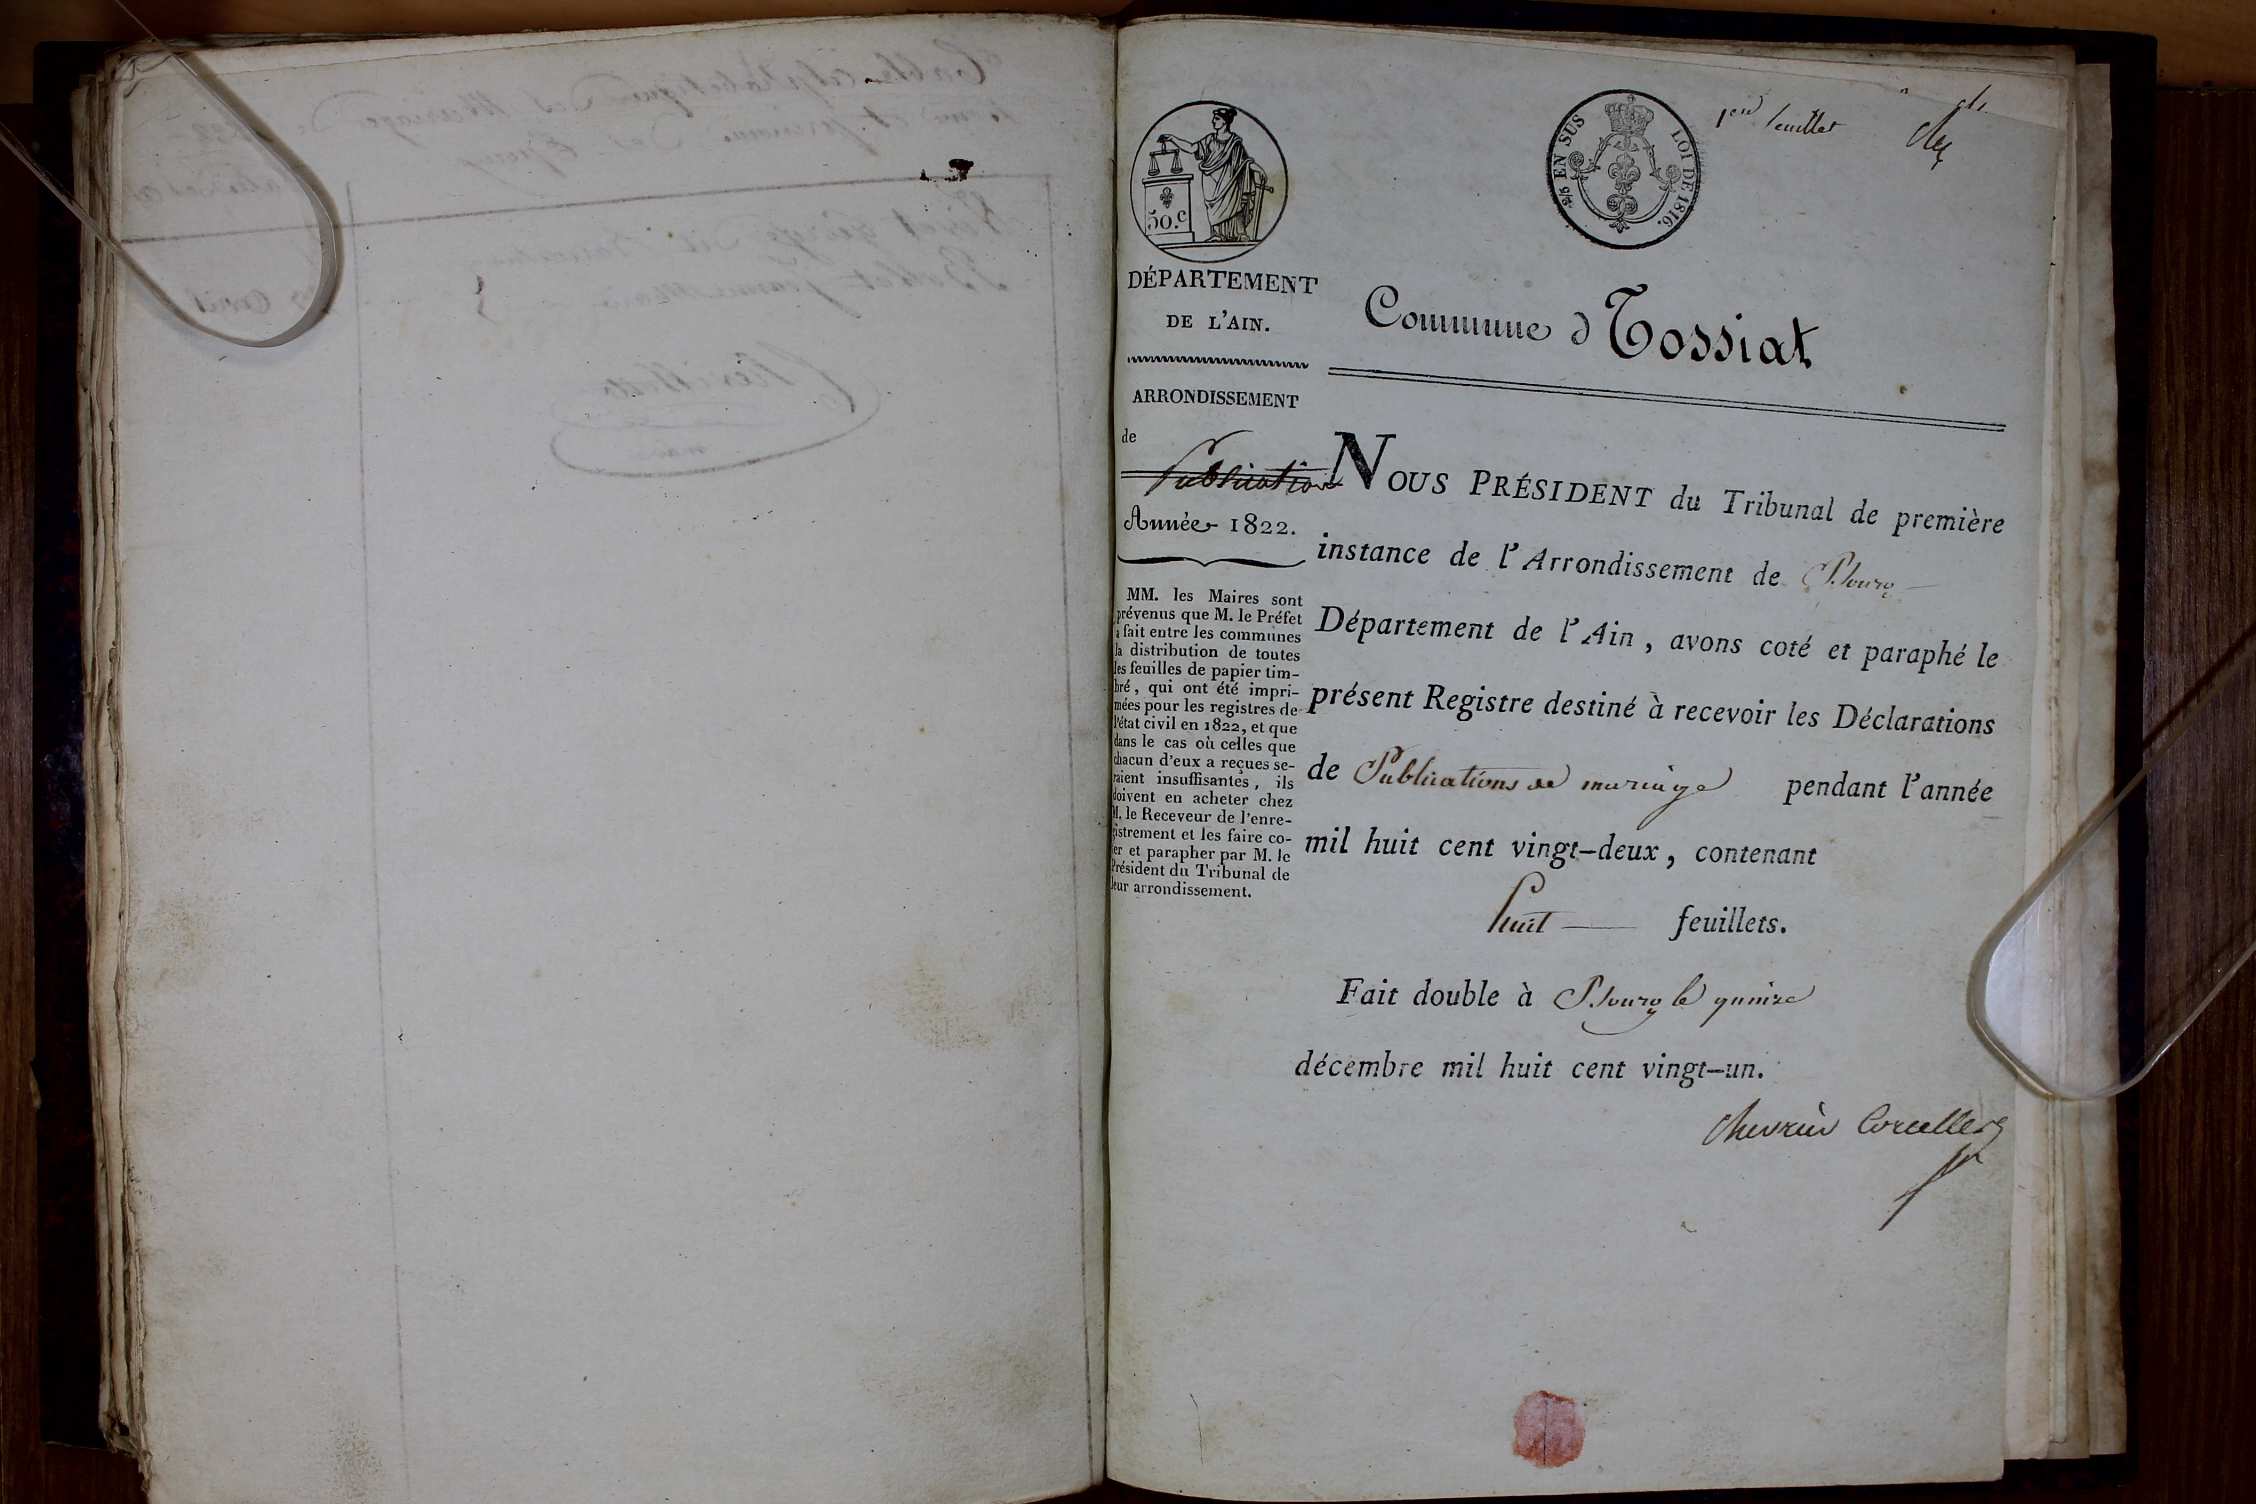 50.c
2/5 EN SUS
LOI DE 1816.
1er feuillet
DÉPARTEMENT
DE L'AIN.
ARRONDISSEMENT
de
Publication
Année 1822.
MM. les Maires sont
prévenus que M. le Préfet
a fait entre les communes
la distribution de toutes
les feuilles de papier tim-
bré, qui ont été impri-
mées pour les registres de
l'état civil en 1822, et que
dans le cas où celles que
chacun d'eux a reçues se-
raient insuffisantes, ils
doivent en acheter chez
M. le Receveur de l'enre-
gistrement et les faire co-
ter et parapher par M. le
Président du Tribunal de
leur arrondissement.
Commune d Tossiat
NOUS PRÉSIDENT du Tribunal de première
instance de l'Arrondissement de Bourg
Département de l'Ain, avons coté et paraphé le
présent Registre destiné à recevoir les Déclarations
de Publications de mariage pendant l'année
mil huit cent vingt-deux, contenant
huit feuillets.
Fait double à Bourg le quinze
décembre mil huit cent vingt-un.